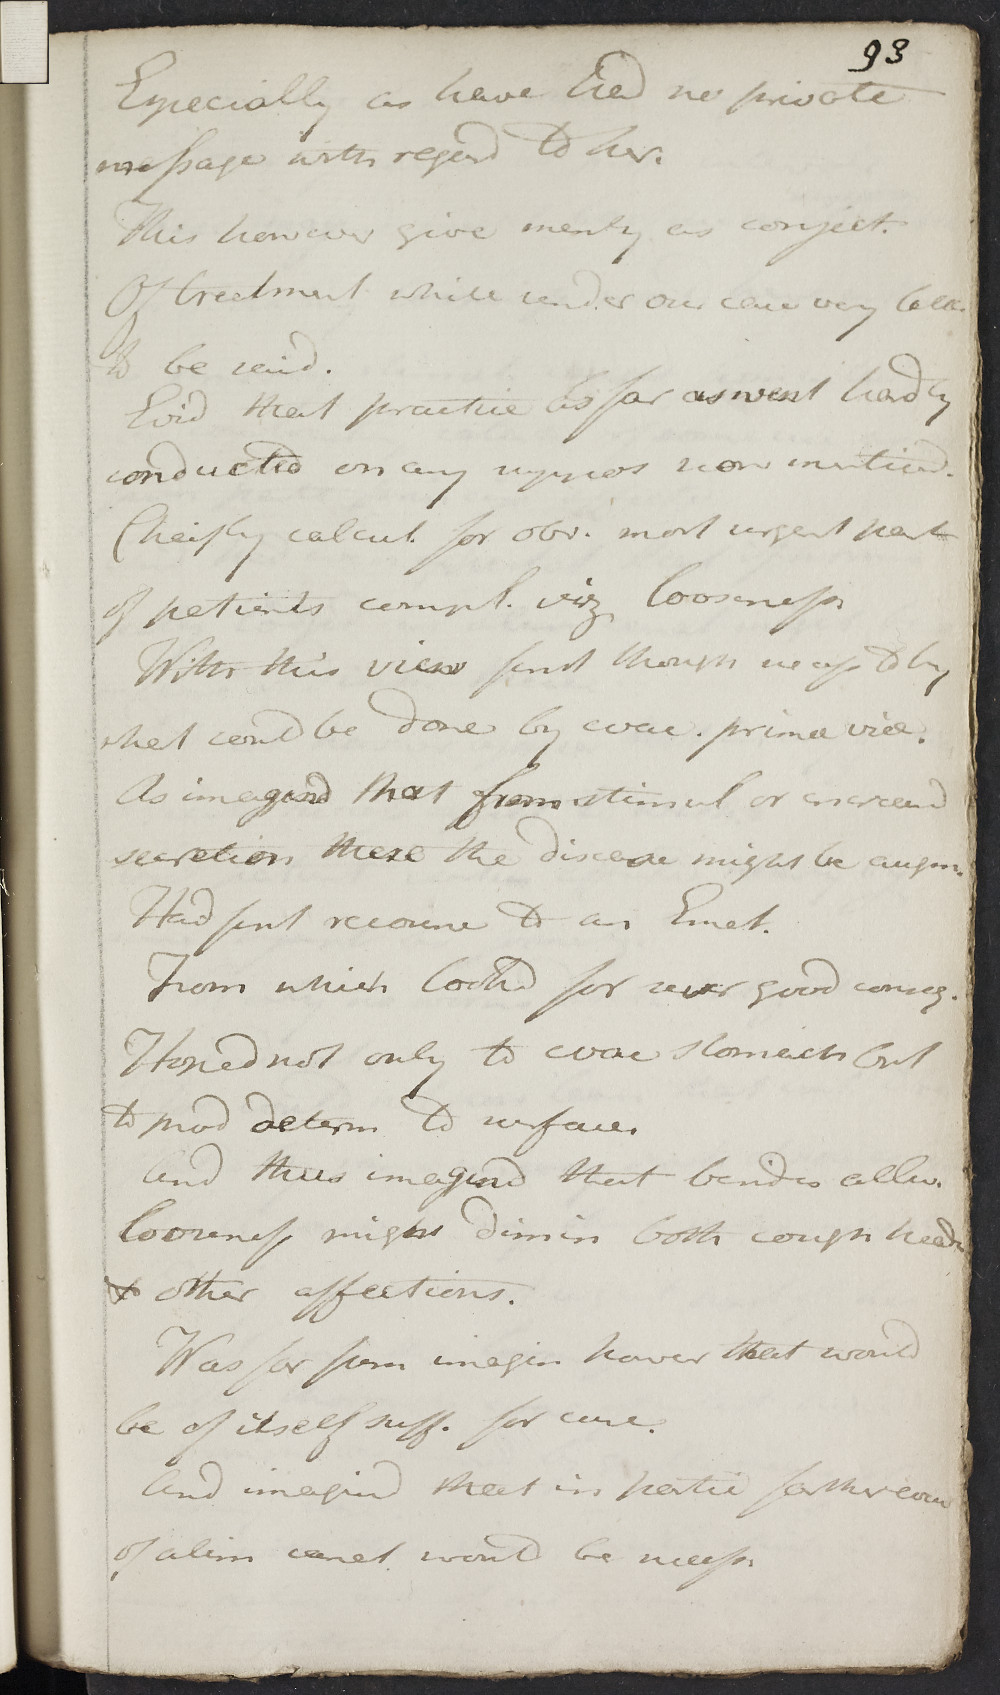 93
Especially as have had no private
message with regard to her.
This however give merely as conject.
Of treatment while under our care very little
to be said.
Evid that practice as far as went hardly
conducted on any suppos now mentiond.
Cheifly calcul. for obv. most urgent part
of patients compl. viz looseness
With this view first though necess to try
what could be done by evac. primæ viæ.
As imagind that from stimul or increasd
secretion there the disease might be augm.
Had first recourse to an Emet.
From which lookd for sever good conseq.
Hoped not only to evac stomach but
to prod determ to surface.
And thus imagind that besides allev.
looseness might dimin both cough head
& other affections.
Was far from imagin however that would
be of itself suff. for cure.
And imagind that in partic farther evac
of alim canal would be necess